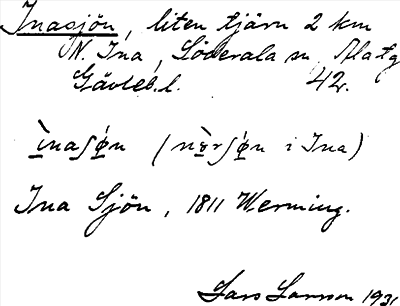 Inasjön, liten tjärn 2 km
N. Ina, Söderala sn, Flatg
Gävleb.l. 42.
ìnaʃø̀n (nɷ̀rʃø̀n i Ina)
Ina Sjön, 1811 Werming.
Lars Larsson 193